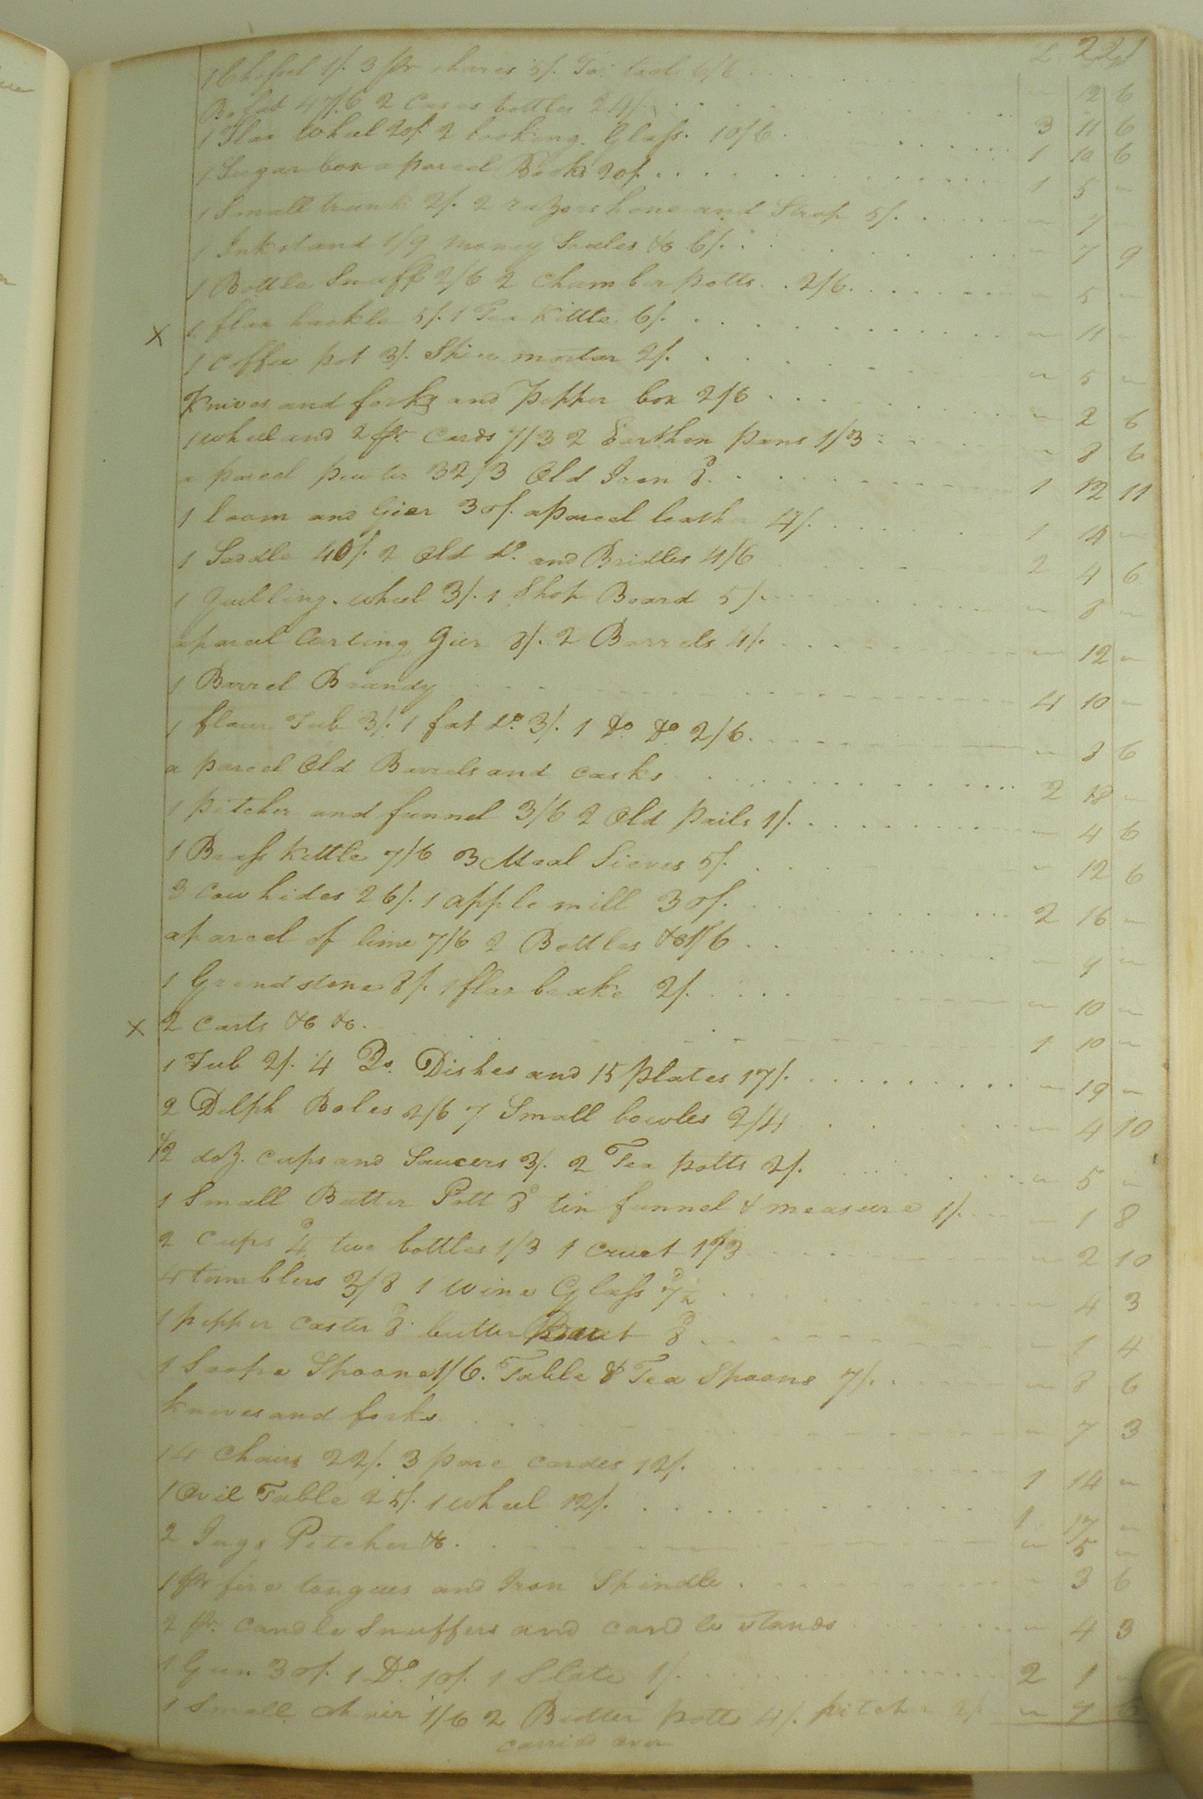 221
1 Chissel 1/. 3 pr shares 5/. 6/6 12 6
Bofat 47/6 2 Cases bottles 24/. 3 11 6
1 Flax Wheel 20/. 2 looking Glass. 10/6 1 10 6
1 Sugar box a parcel Books 20/. 1 5 "
1 Small trunk 2/. 2 razors hone and Strop 5/. " 7 "
1 Inkstand 1/9 money Scales &c 6/. " 7 9
1 Bottle Snuff 2/6 2 Chamber potts 2/6 " 5 "
X 1 flax hackle 5/. 1 Tea Kittle 6/. " 11 "
1 Coffee pot 3/. Spice morter 2/. " 5 "
Knives and forks and Pepper box 2/6 " 2 6
1 wheel and 2 pr Cards 7/3 2 Earthen pans 1/3 " 8 6
a parcel pewter 32/3 Old Iron 8d 1 12 11
1 loom and Gier 30/. a parcel leather 4/. 1 14 "
1 Saddle 40/. 2 Old Do. and Bridles 4/6 2 4 6
1 Quilling wheel 3/. 1 Shop Board 5/. " 8 "
a parcel Carting Gier 8/. 2 Barrels 4/. " 12 "
1 Barrel Brandy 4 10 "
1 flour Tub 3/. 1 fat Do. 3/. 1 Do Do 2/6. " 8 6
a parcel Old Barrels and casks 2 18 "
1 pitcher and funnel 3/6 2 Old pails 1/. " 4 6
1 Brass Kettle 7/6 3 Meal Sieves 5/. " 12 6
3 Cow hides 26/. 1 apple mill 30/. 2 16 "
a parcel of lime 7/6 2 Bottles &c 1/6 " 9 "
1 Grindstone 8/. 1 flax brake 2/. " 10 "
X 2 carts &c &c. 1 10 "
1 Tub 2/. 4 Do. Dishes and 15 plates 17/. " 19 "
2 Delph Boles 2/6 7 Small bowles 2/4 " 4 10
1/2 doz. cups and Saucers 3/. 2 Tea potts 2/. " 5 "
1 Small Butter Pott 8d tin funnel & measure 1/. " 1 8
2 Cups 4d two bottles 1/3 1 cruet 1/3 " 2 10
4 tumblers 3/8 1 wine Glass 7d 1/2 " 4 3
1 pepper caster 8d butter 8d " 1 4
1 Soope Spoone 1/6. Table & Tea Spoons 7/. " 8 6
Knives and forks " 7 3
14 Chairs 22/. 3 pare cardes 12/. 1 14 "
1 Ovil Table 25/. 1 wheel 12/. 1 17 "
2 Jugs Pitcher &c. " 5 "
1 pr fire tongues and Iron Spindle " 3 6
2 pr. Candle Snuffers and candle stands " 4 3
1 Gun 30/. 1 Do. 10/. 1 Slate 1/. 2 1 "
1 Small chair 1/6 2 Butter potts 4/. pitcher 2/. " 7 6
carried over